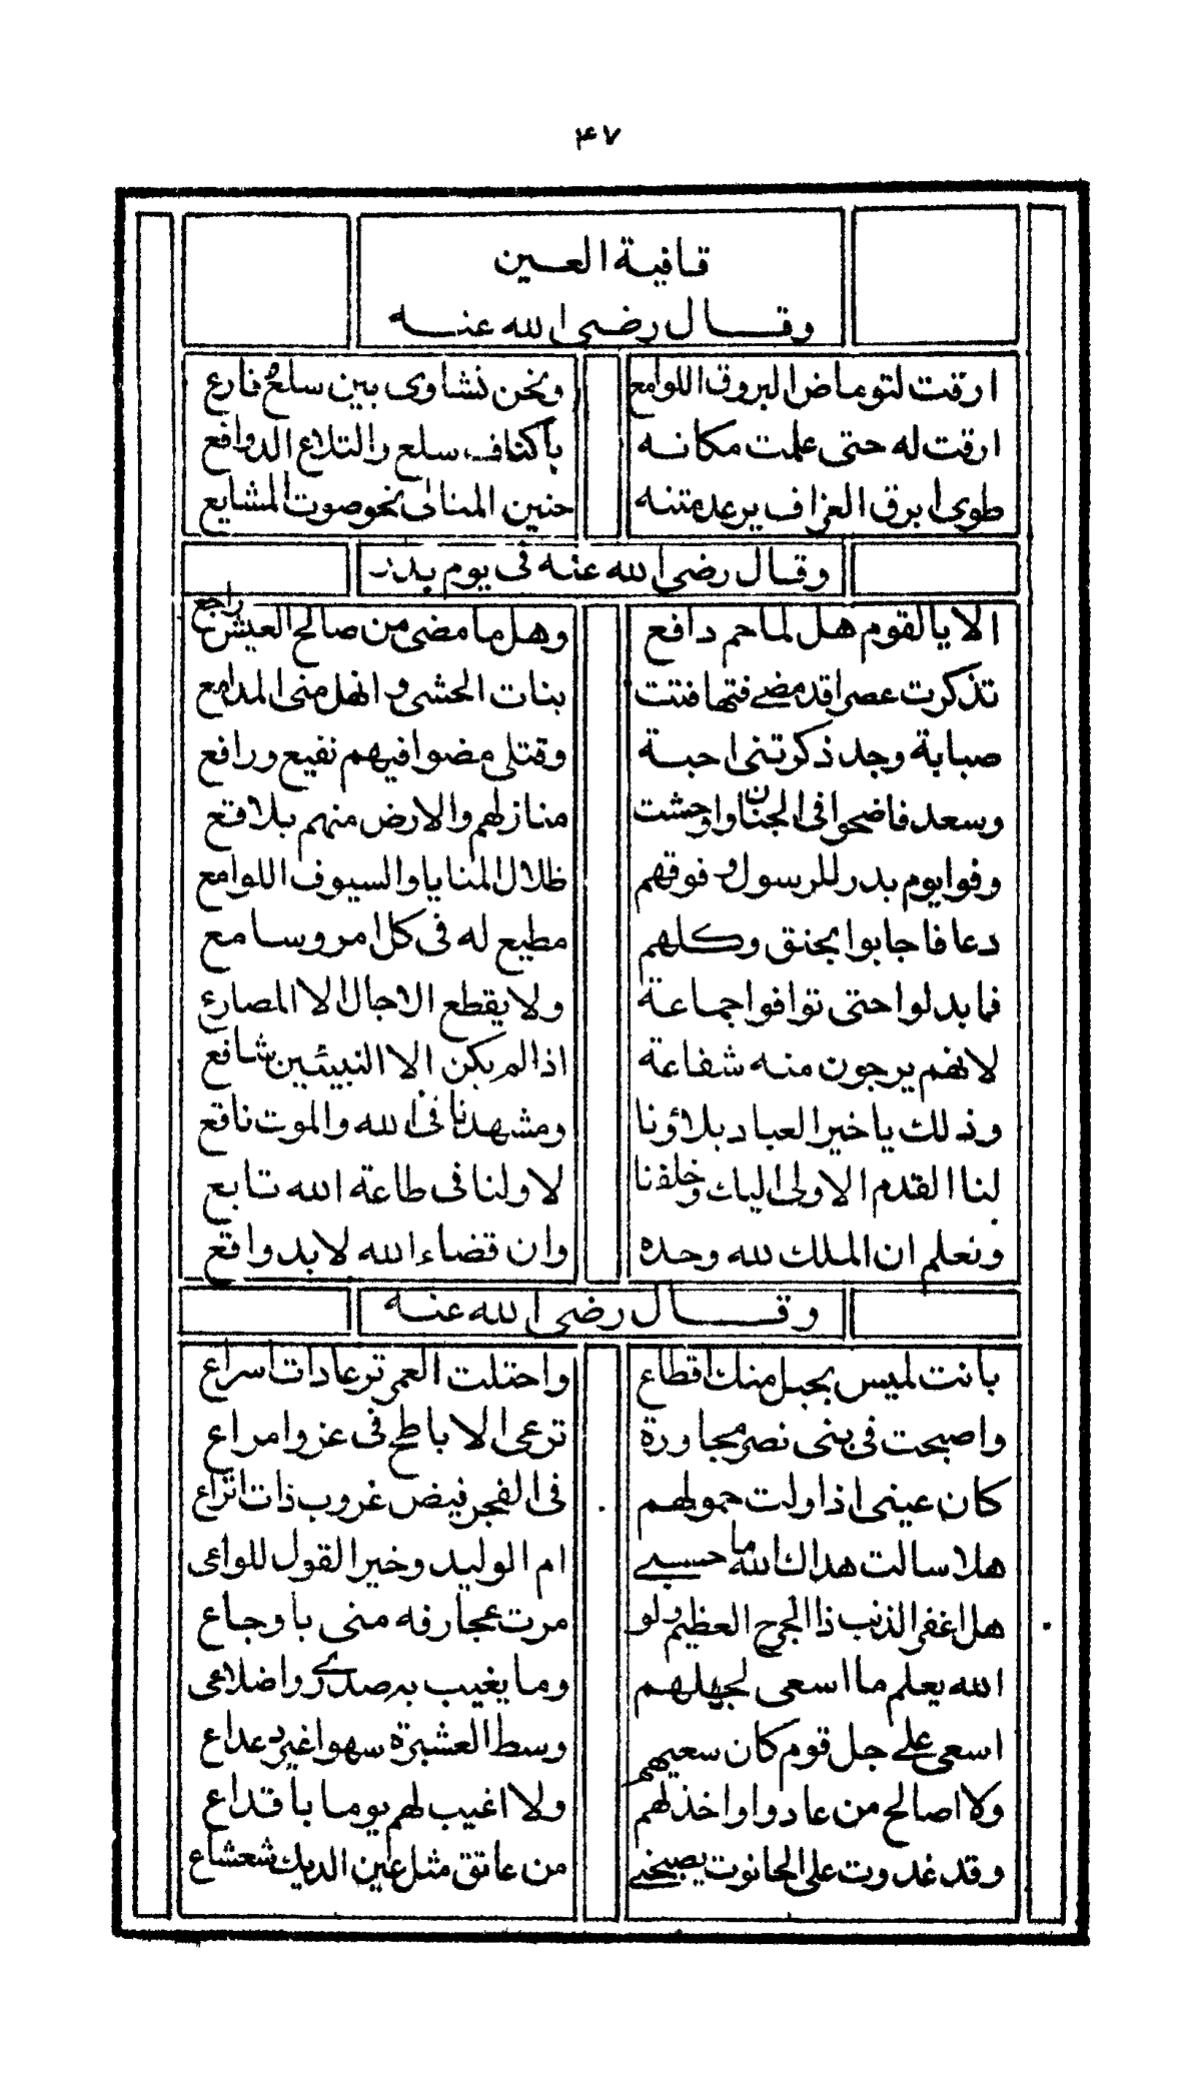 ۴۷
قافية العين
وقال رضى الله عنه
ارقت لتوماض البروق اللوامع ونحن نشاوى بين سلع فارع
ارقت له حتى علمت مكانه بأكناف سلع والتلاع الدوافع
طوى ابرق العزاف يرعد متنه حنين المتالى نحو صوت المشايع
وقال رضى الله عنه فى يوم بدر
الا يا لقوم هل لما حم دافع وهل ما مضى من صالح العيش راجع
تذكرت عصرا قد مضى فتهافتت بنات الحشى وانهل منى المدامع
صبابة وجد ذكرتنى احبة وقتلى مضوا فيهم نفيع ورافع
وسعد فاضحوا فى الجنان واوحشت منازلهم والارض منهم بلاقع
وفوا يوم بدر للرسول وفوقهم ظلال المنايا والسيوف اللوامع
دعا فاجابوا بحنق وكلهم مطيع له فى كل امر وسامع
فما بدلوا حتى توافوا جماعة ولا يقطع الاجال الا المصارع
لانهم يرجون منه شفاعة اذا لم يكن الا النبيئين شافع
وذلك يا خير العباد بلاؤنا ومشهدنا فى الله والموت ناقع
لنا القدم الاولى اليك وخلفنا لاولنا فى طاعة الله تابع
ونعلم ان الملك لله وحده وان قضاء الله لابد واقع
وقال رضى الله عنه
بانت لميس بحبل منك اقطاع واحتلت العمر ترعا ذات اسراع
واصبحت فى بنى نصر مجاورة ترعى الاباطح فى عز وامراع
كان عينى اذا ولت حمولهم فى الفجر فيض غروب ذات اتراع
هلا سالت هداك الله ما حسبى ام الوليد وخير القول للواعى
هل اغفر الذنب ذا الجرح العظيم ولو مرت عجارفه منى باوجاع
الله يعلم ما اسعى لجهلهم وما يغيب به صدرى واضلاعى
اسعى على جل قوم كان سعيهم وسط العشيرة سهوا غير دعداع
ولا اصالح من عادوا واخذلهم ولا اغيب لهم يوما باقداع
وقد غدوت على الحانوت يصبحنى من عاتق مثل عين الديك شعشاع